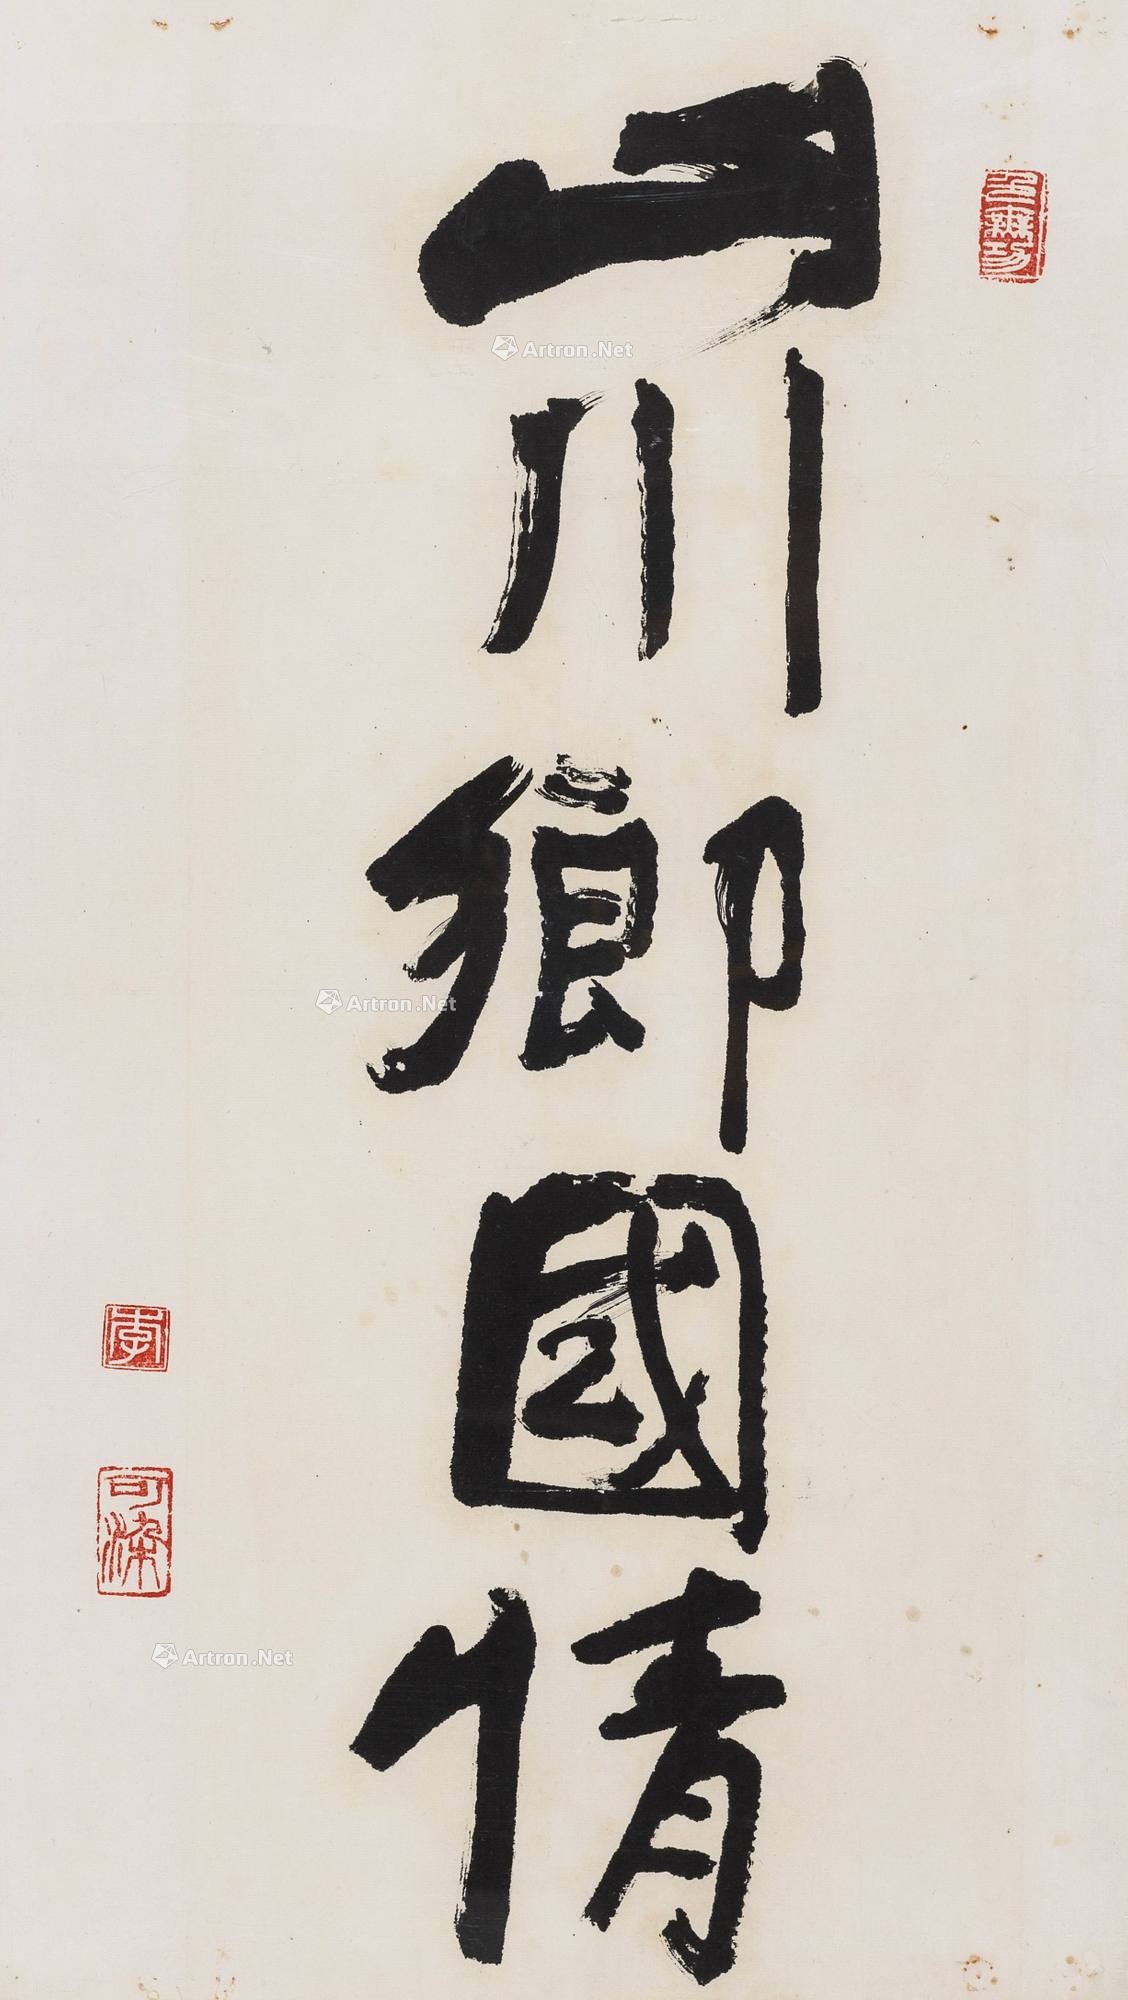 山川鄉國情
李
可染
Artron.Net
Artron.Net
Artron.Net